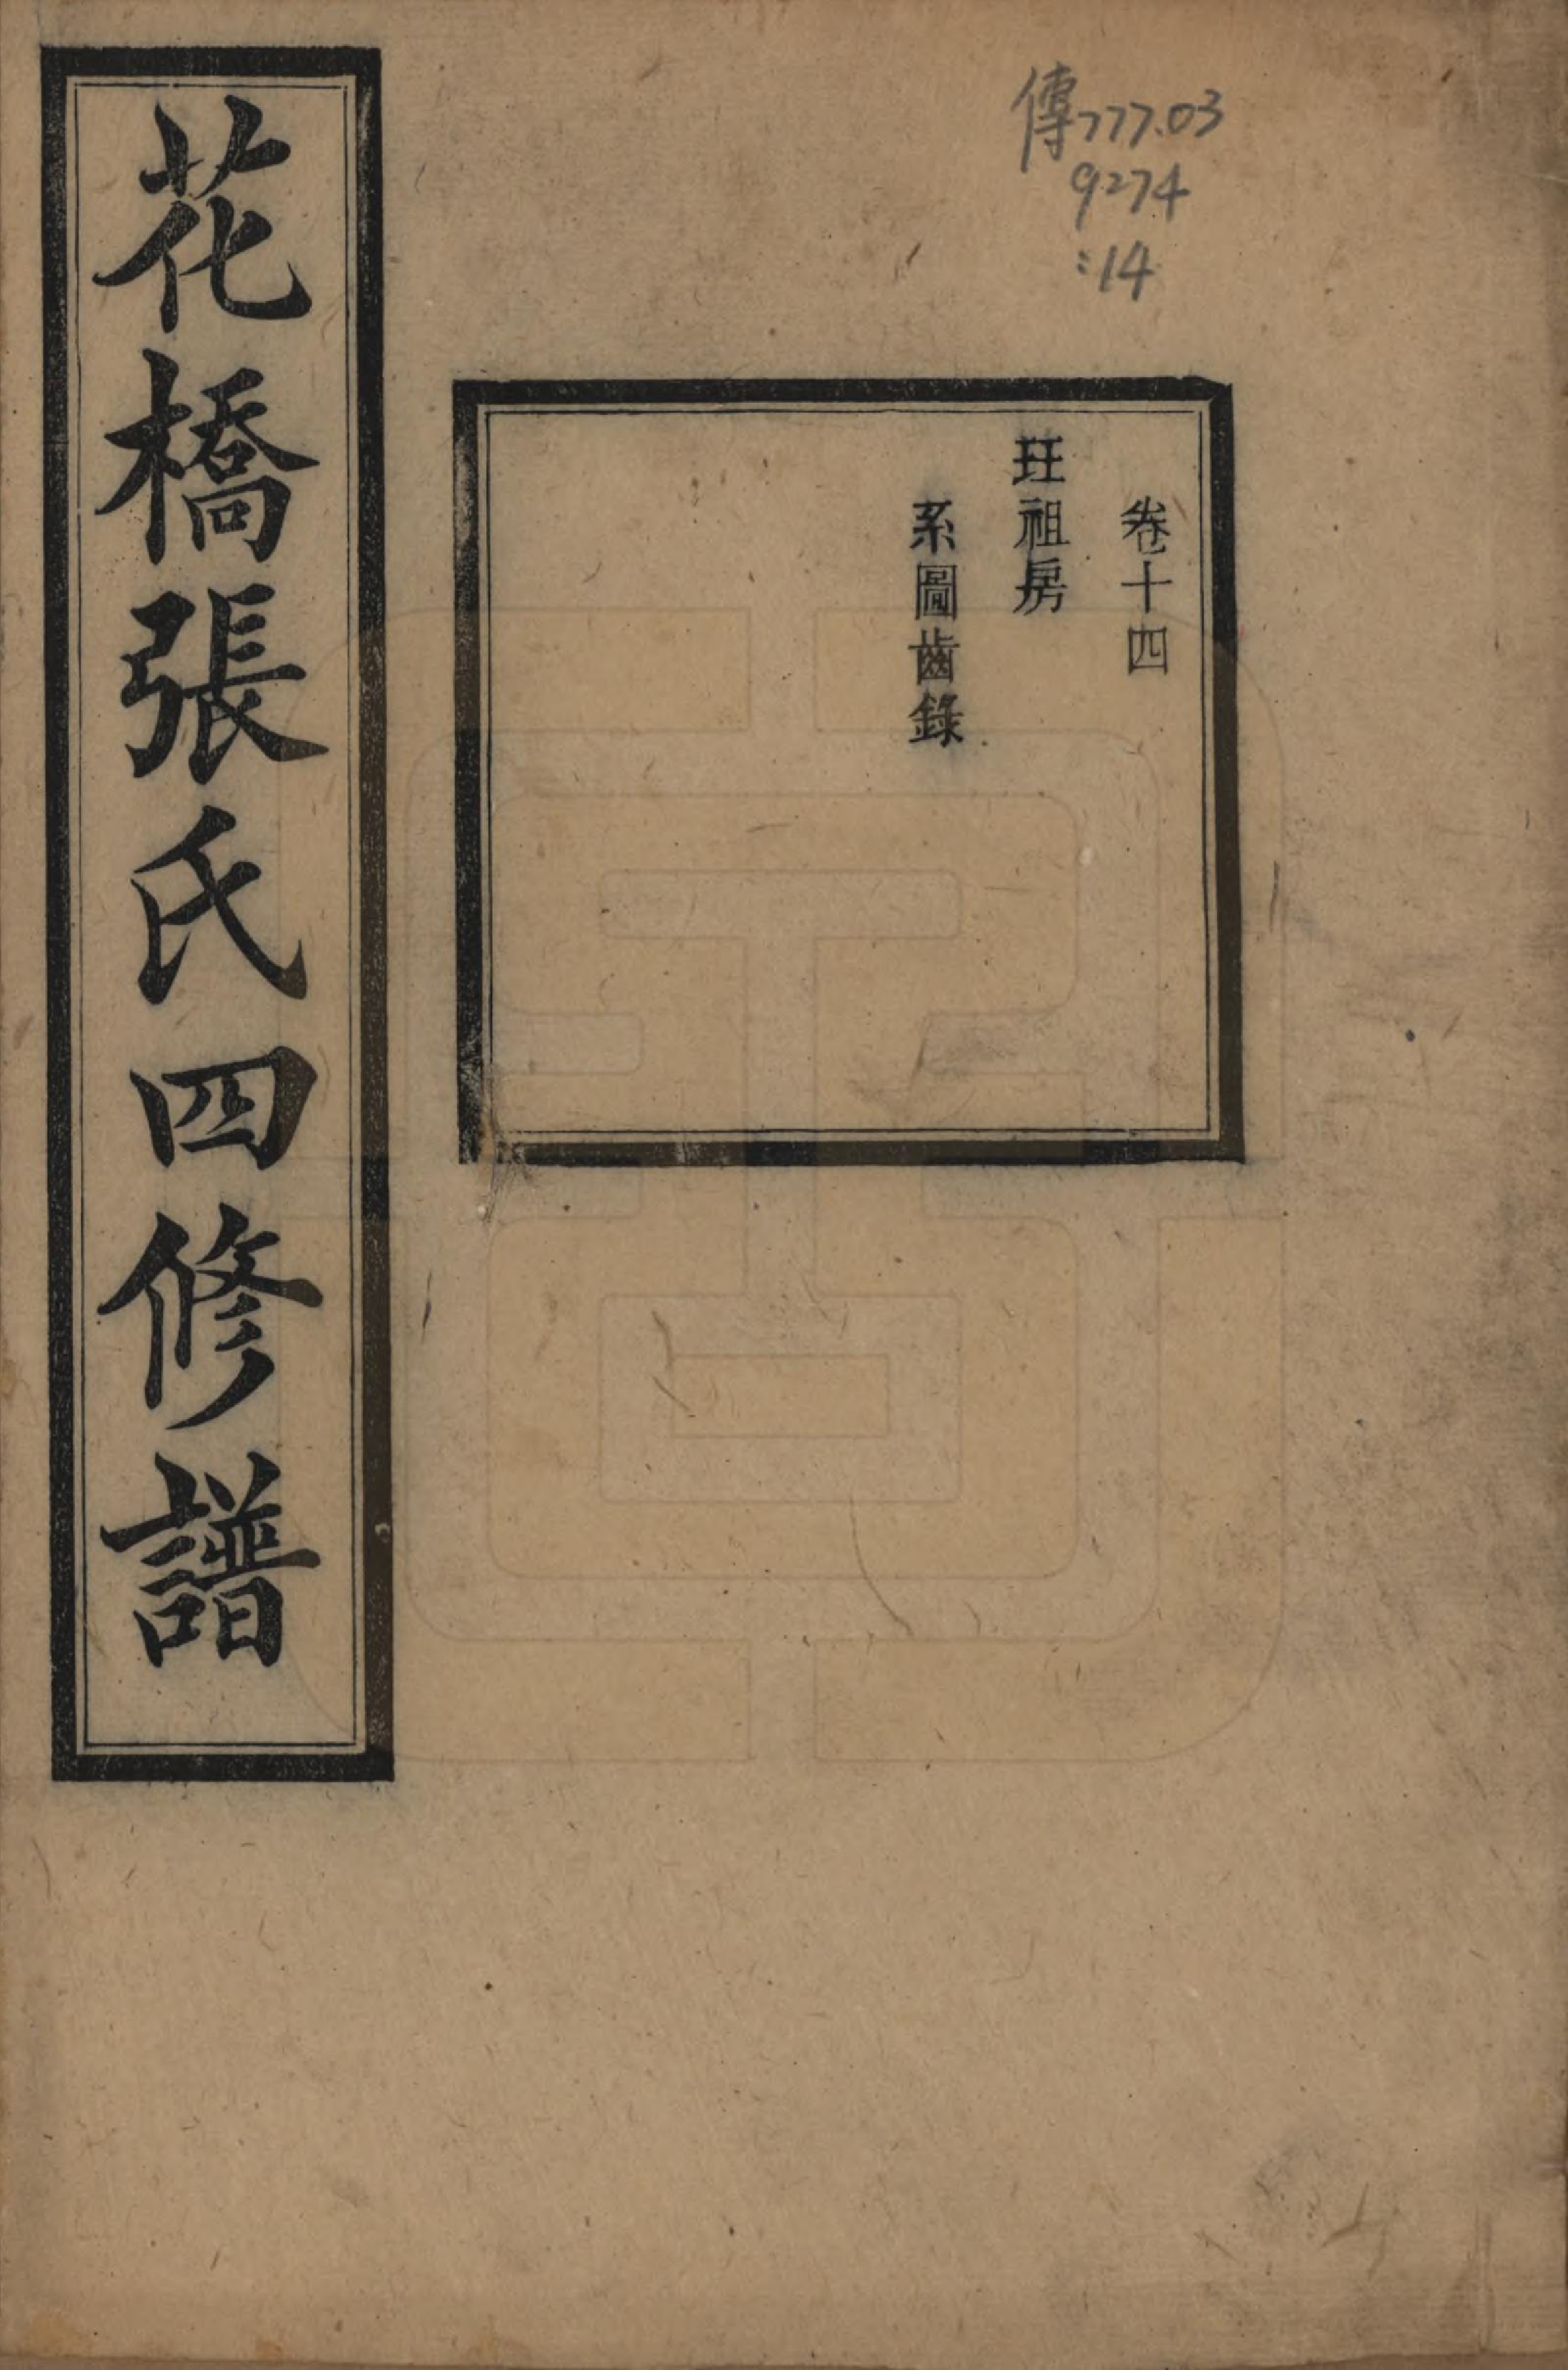 傳777.03
9274
:14
卷十四
玨祖房
系圖齒錄
花橋張氏四修譜